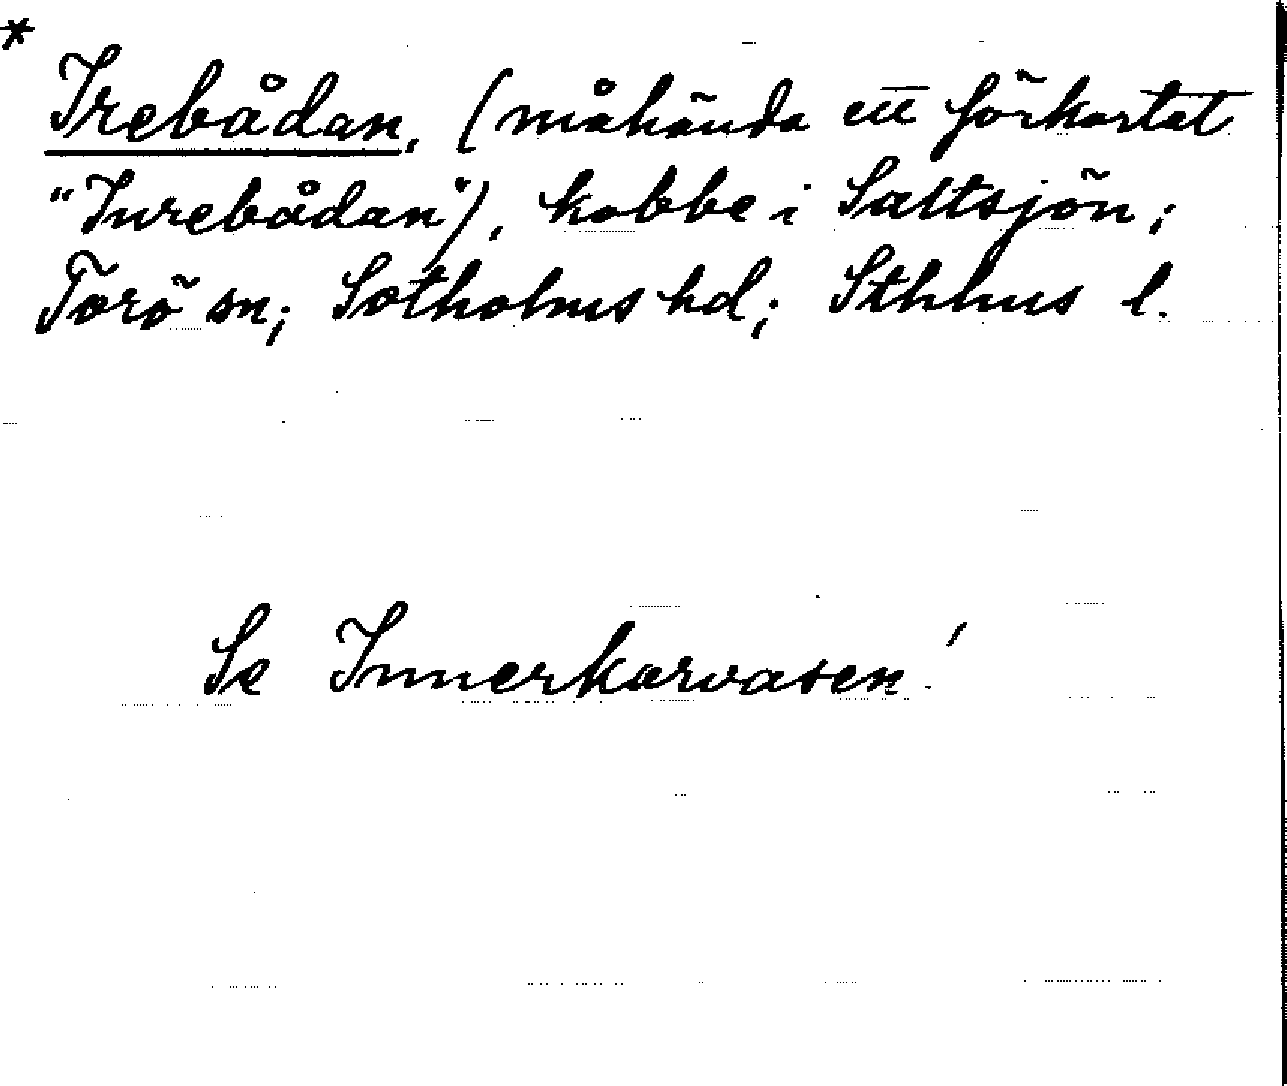 *
Irebådan, (måhända ett förkortat
"Inrebådan"), kobbe i Saltsjön;
Torö sn; Sotholms hd; Sthlms l.
Se Innerkarvasen!